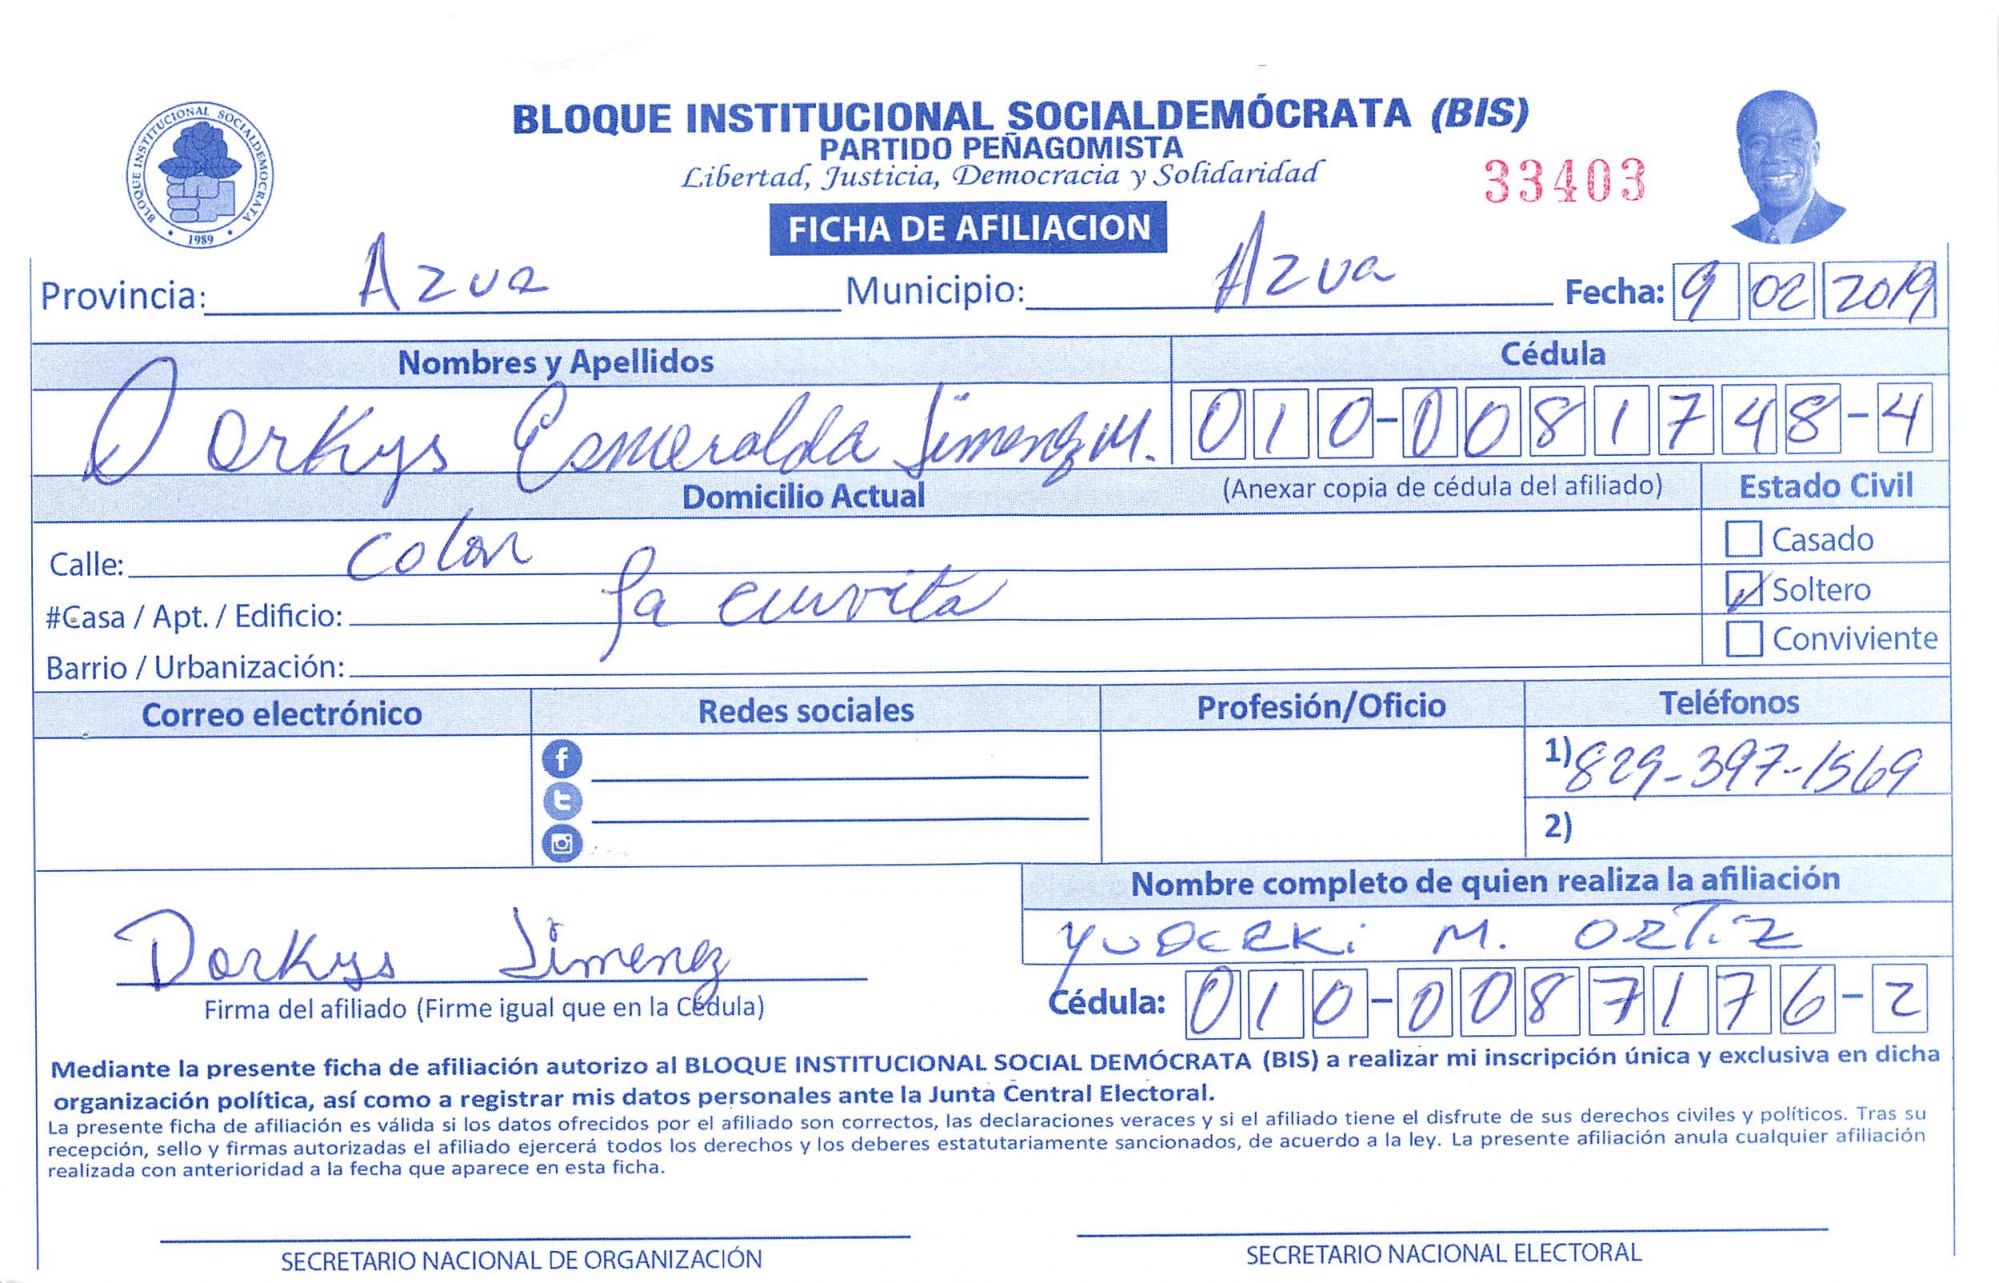 BLOQUE INSTITUCIONAL SOCIALDEMÓCRATA (BIS)
PARTIDO PEÑAGOMISTA
Libertad, Justicia, Democracia y Solidaridad
33403
FICHA DE AFILIACION
BLOQUE INSTITUCIONAL SOCIALDEMOCRATA
1989
Provincia: Azua Municipio: Azua Fecha: 9 02 2019
Nombres y Apellidos Cédula
Dorkys Esmeralda Jimenez M. 010-0081748-4
Domicilio Actual (Anexar copia de cédula del afiliado) Estado Civil
Calle: Colon Casado
#Casa / Apt. / Edificio: La curvita Soltero
Barrio / Urbanización: Conviviente
Correo electrónico Redes sociales Profesión/Oficio Teléfonos
1) 829-397-1569
2)
Nombre completo de quien realiza la afiliación
Yuderki M. Ortiz
Dorkys Jimenez
Firma del afiliado (Firme igual que en la Cédula) Cédula: 010-0087176-2
Mediante la presente ficha de afiliación autorizo al BLOQUE INSTITUCIONAL SOCIAL DEMÓCRATA (BIS) a realizar mi inscripción única y exclusiva en dicha
organización política, así como a registrar mis datos personales ante la Junta Central Electoral.
La presente ficha de afiliación es válida si los datos ofrecidos por el afiliado son correctos, las declaraciones veraces y si el afiliado tiene el disfrute de sus derechos civiles y políticos. Tras su
recepción, sello y firmas autorizadas el afiliado ejercerá todos los derechos y los deberes estatutariamente sancionados, de acuerdo a la ley. La presente afiliación anula cualquier afiliación
realizada con anterioridad a la fecha que aparece en esta ficha.
SECRETARIO NACIONAL DE ORGANIZACIÓN SECRETARIO NACIONAL ELECTORAL